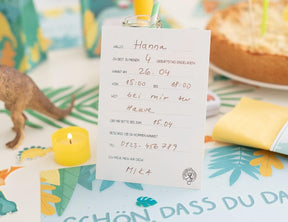 HALLO Hanna
DU BIST ZU MEINEM 4 GEBURTSTAG EINGELADEN!
KOMMST AM 26.04
VON 15:00 BIS 18:00
WO? bei mir zu
Hause
GIB MIR BITTE BIS ZUM 15.04
BESCHEID, OB DU KOMMEN KANNST.
TEL. 0123-456789
ICH FREUE MICH AUF DICH!
MIKA
SCHÖN, DASS DU DA